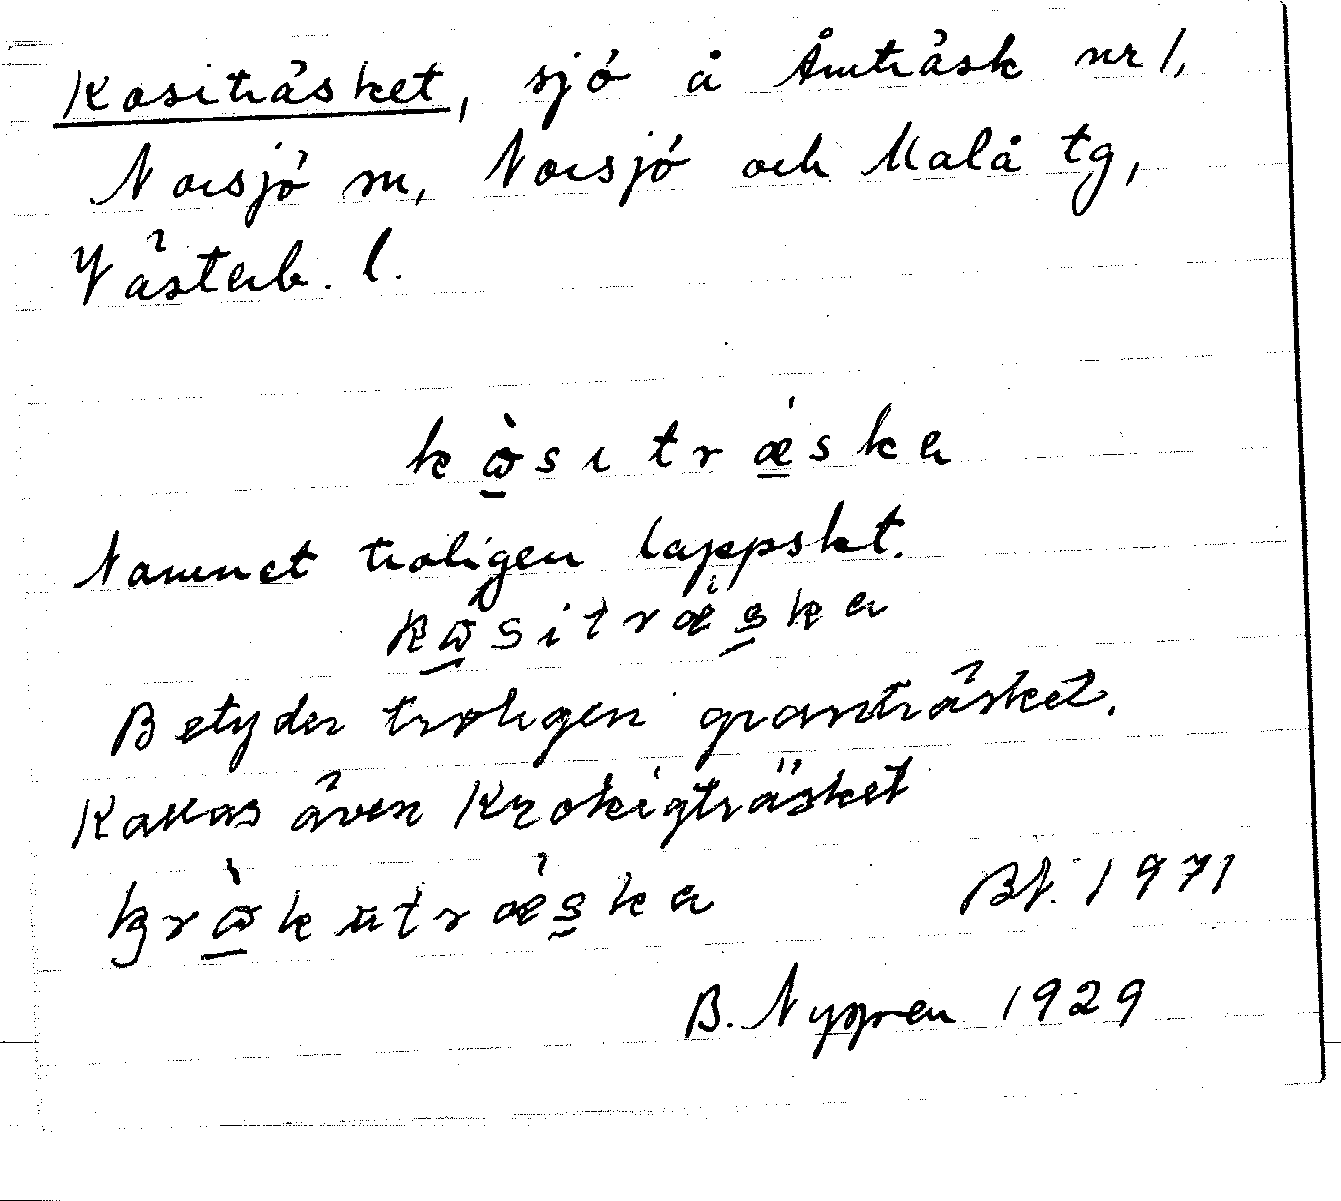 Kositräsket, sjö å Åmträsk nr 1,
Norsjö sn, Norsjö och Malå tg,
Västerb. l.
kὼ̲sιtrǽ̲ska
Namnet troligen lappskt.
kὼ̲sιtræs̲ka
Betyder troligen granträsket.
Kallas även Krokigträsket
krὼ̲kutræs̲ka Bt. 1971
B. Nygren 1929